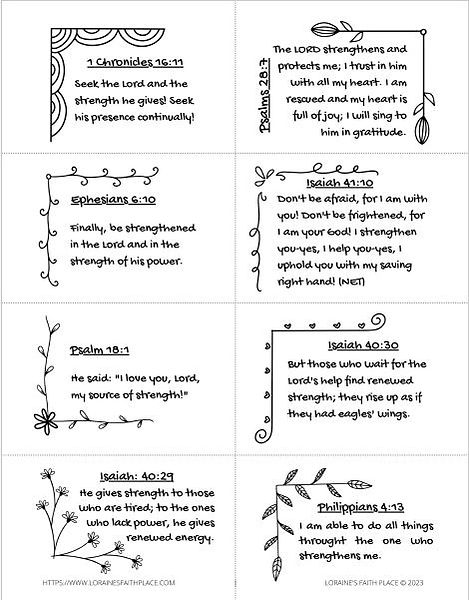 1 Chronides 16:11
Seek the Lord and the
strength he gives! Seek
his presence continually!
Psalms 28:7
The LORD strengthens and
protects me; I trust in him
with all my heart. I am
rescued and my heart is
full of joy; I will sing to
him in gratitude.
Ephesians 6:10
Finally, be strengthened
in the Lord and in the
strength of his power.
Isaiah 41:10
Don't be afraid, for I am with
you! Don't be frightened, for
I am your God! I strengthen
you-yes, I help you-yes, I
uphold you with my saving
right hand! (NET)
Psalm 18:1
He said: "I love you, Lord,
my source of strength!"
Isaiah 40:30
But those who wait for the
Lord's help find renewed
strength; they rise up as if
they had eagles' wings.
Isaiah: 40:29
He gives strength to those
who are tired; to the ones
who lack power, he gives
renewed energy.
Philippians 4:13
I am able to do all things
throught the one who
strengthens me.
HTTPS://WWW.LORAINESFAITHPLACE.COM
LORAINE'S FAITH PLACE © 2023